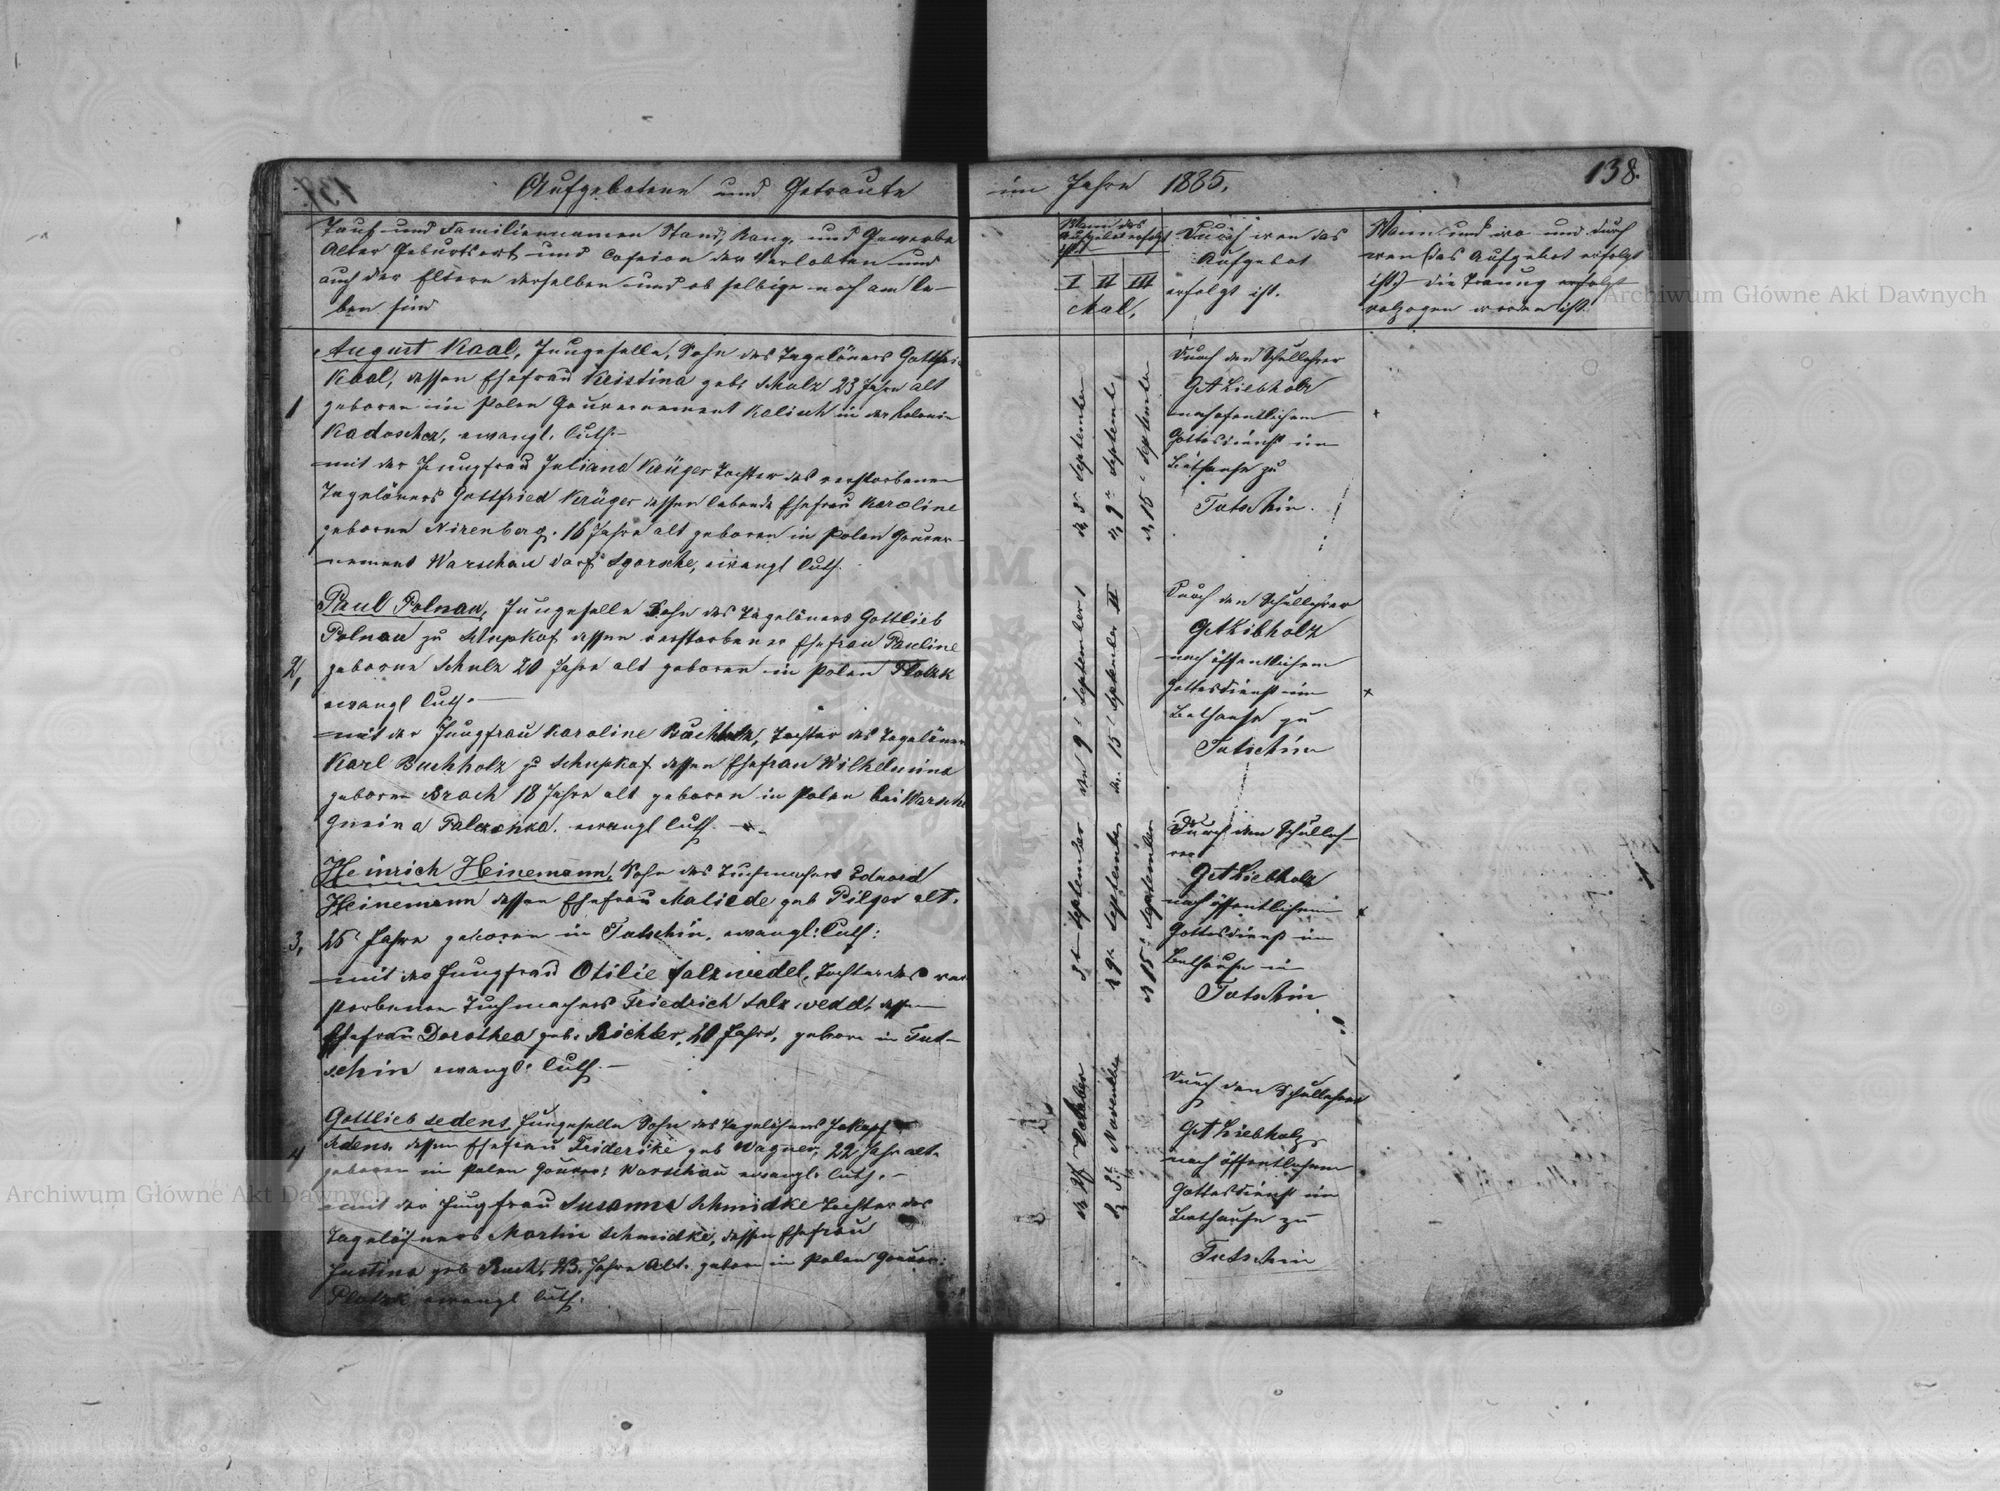 Aufgebotene und Getraute
im Jahre 1885.
138.
Tauf und Familiennamen Stand, Rang, und Gewerbe
Alter Geburtsort und Cofesion der Verlobten und
auch der Eltern derselben und ob selbige noch am Le-
ben sind
Wann das
Aufgebot erfolgt
ist
I II III
Mal,
Durch wen das
Aufgebot
erfolgt ist.
Wann und wo und durch
wen (das Aufgebot erfolgt
ist) die Trauung erfolgt
volzogen worden ist.
1
August Kaal, Jungeselle, Sohn des Tagelöners
Kaal, dessen Ehefrau Kristina geb. Schulz 23 Jahre alt
geboren in Polen Gouvernement Kalisch in der Kolonie
Kadoschez, ewangl. Luth.-
mit der Jungfrau Juliana Krüger Tochter des verstorbenen
Tagelöners Gottfried Krüger dessen lebende Ehefrau Karoline
geborne Nirenberg. 16 Jahre alt geboren in Polen Gouver-
nement Warschau Dorf Sgorsche, ewangl Luth.
den 5 September
d. 9 September
d. 15 September
Durch den Schullehrer
G A Liebholz
nach ofentlichem
Gottesdienst im
Bethause zu
Tutschin.
2,
Paul Polnau, Jungeselle Sohn des Tagelöners Gottlieb
Polnau zu Schupkof dessen verstorbener Ehefrau Pauline
geborne Schulz 20 Jahre alt geboren in Polen Plotzk
ewangl Luth.-
mit der Jungfrau Karoline Buchholz, Tochter des Tagelöners
Karl Buchholz zu Schupkof dessen Ehefrau Wilhelmina
geboren Brach 18 Jahre alt geboren in Polen bei Warschau
Gmina Palczonka. ewangl Luth.
den 9 September I
den 15 September II
Durch den Schullehrer
G A Libholz
nach öffentlichem
Gottesdienst im
Bethause zu
Tutschin
3,
Heinrich Heinemann, Sohn des Tuchmachers Eduard
Heinemann dessen Ehefrau Malilde geb Pilger alt.
25 Jahre geboren in Tutschin. ewangl: Luth:
mit der Jungfrau Otilie Salzwedel, Tochter des ver
storbenen Tuchmachers Friedrich Salzwedel, dessen
Ehefrau Dorothea geb. Richter, 20 Jahre, geboren in Tut-
schin ewangl: Luth.-
September
d 9 September
d 15 September
Durch den Schulleh-
rer
G A Liebholz
nach öffentlichem
Gottesdienst im
Bethause in
Tutschin
4
Gottlieb Sedens Jungeselle Sohn des Tagelöhners
Sedens dessen Ehefrau Friderike geb Wagner, 22 Jahr alt.
geboren in Polen Gouver: Warschau ewangl. Luth.-
mit der Jungfrau Susanna Schmidke Tochter des
Tagelöhners Martin Schmidke, dessen Ehefrau
Justina geb Ruch, 23. Jahre Alt. geboren in Polen Gouver:
Plotzk ewangl Luth.
October
November
Durch den Schullehrer
G A Liebholz
nach öffentlichem
Gottesdienst im
Bethause zu
Tutschin
Archiwum Główne Akt Dawnych
Archiwum Główne Akt Dawnych